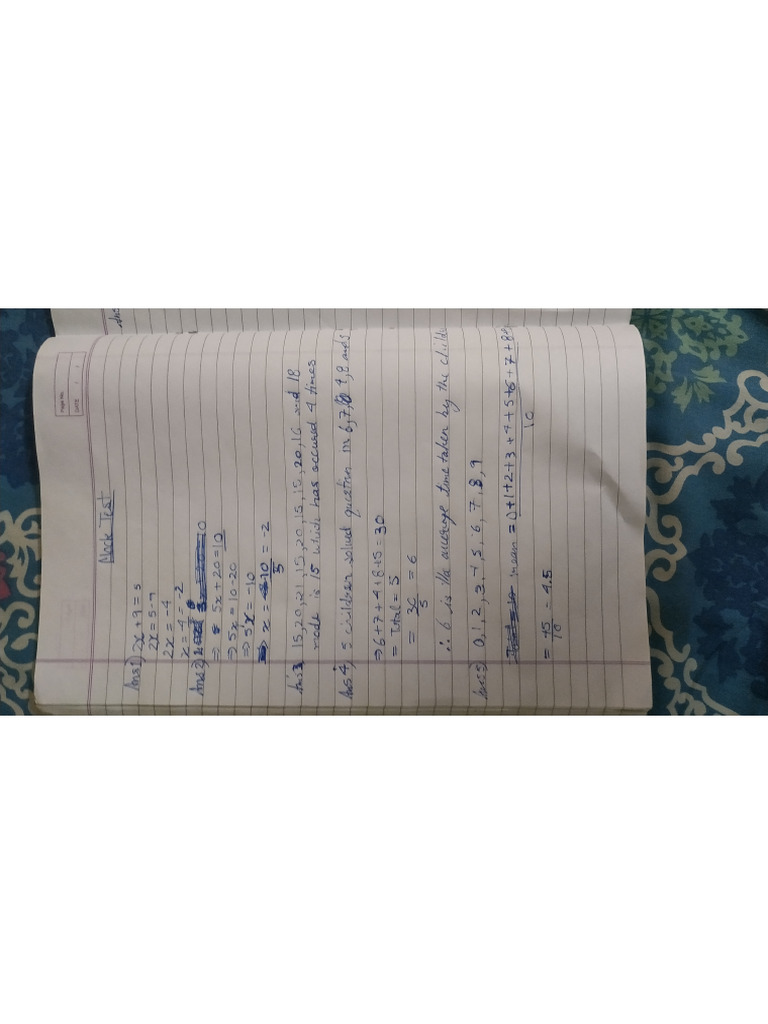 Page No.
Date
Mock Test
Ans1) 2x + 9 = 5
2x = 5-9
2x = -4
x = -4 = -2
Ans2)
⇒ 5x + 20 = 10
⇒ 5x = 10-20
⇒ 5x = -10
x = -10 = -2
5
Ans3 15, 20, 21, 15, 20, 15, 15, 20, 16 and 18
mode is 15 which has occured 4 times
Ans4, 5 children solved question in 6, 7, 4, 8 and 5
⇒ 6+7+4+8+5=30
= Total = 5
= 30 = 6
5
∴ 6 is the average time taken by the
Ans5) 0, 1, 2, 3, 4, 5, 6, 7, 8, 9
mean = 0+1+2+3+4+5+6+7+8+
10
= 45 = 4.5
10